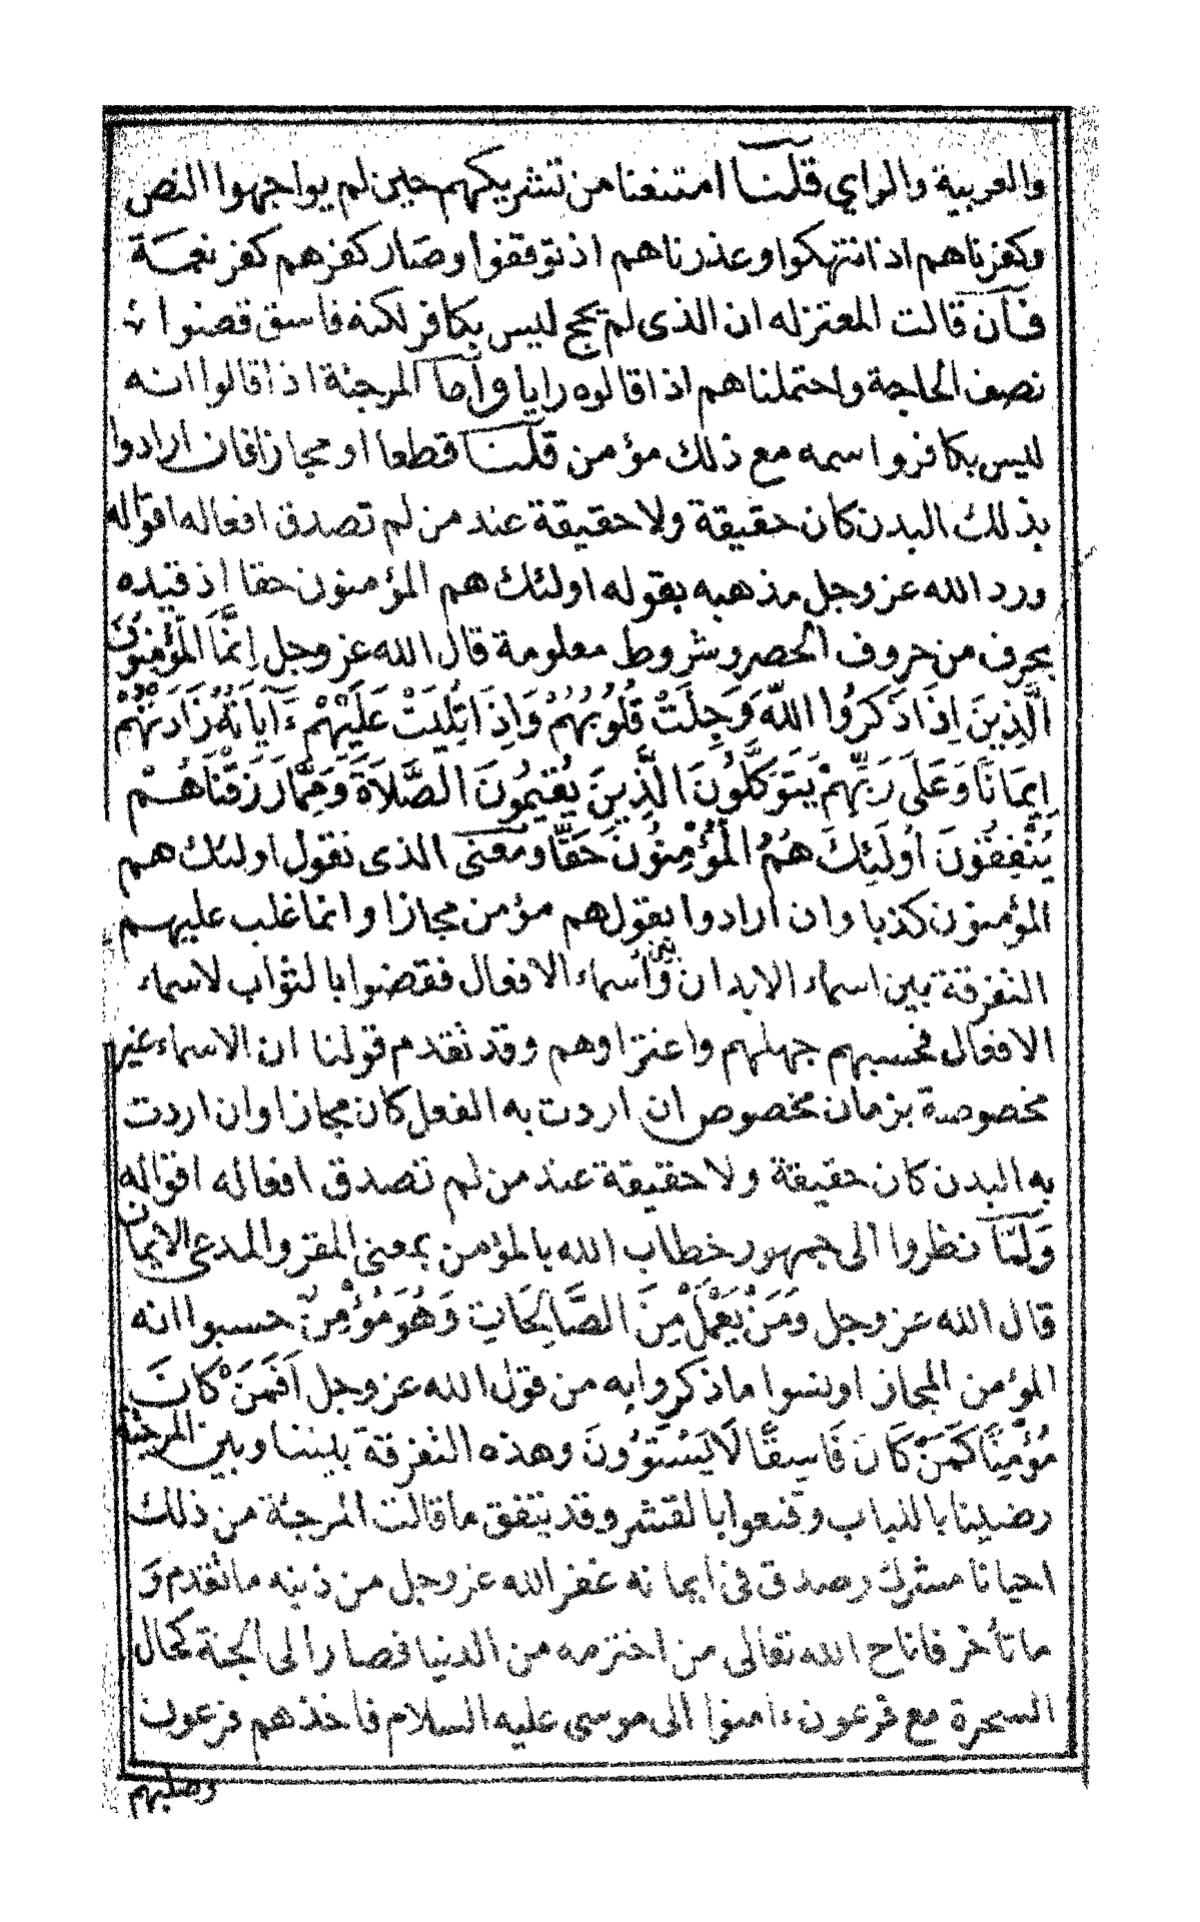 والعربية والراي قلنا امتنعنا من تشريكهم حين لم يواجهوا النص
وكفرناهم اذ انتهكوا وعذرناهم اذ توقفوا وصار كفرهم كفر نعمة
فان قالت المعتزله ان الذى لم يحج ليس بكافر لكنه فاسق قضوا
نصف الحاجة واحتملناهم اذ اقالوه رايا واما المرجئة اذ اقالوا انه
ليس بكافر واسمه مع ذلك مؤمن قلنا قطعا او مجازا فان ارادوا
بذلك البدن كان حقيقة ولا حقيقة عند من لم تصدق افعاله اقواله
ورد الله عز وجل مذهبه بقوله اولئك هم المؤمنون حقا اذ قيده
بحرف من حروف الحصر وشروط معلومة قال الله عز وجل إِنَّمَا الْمُؤْمِنُونَ
الَّذِينَ إِذَا ذَكَرُوا اللَّهَ وَجِلَتْ قُلُوبُهُمْ وَإِذَا تُلِيَتْ عَلَيْهِمْ ءَآيَاتُهُ زَادَتْهُمْ
إِيمَانًا وَعَلَى رَبِّهِمْ يَتَوَكَّلُونَ الَّذِينَ يُقِيمُونَ الصَّلَاةَ وَمِمَّا رَزَقْنَاهُمْ
يُنْفِقُونَ أُولَئِكَ هُمُ الْمُؤْمِنُونَ حَقًّا ومعنى الذى نقول اولئك هم
المؤمنون كذبا وان ارادوا بقولهم مؤمن مجازا وانما غلب عليهم
التفرقة بين اسماء الابدان وبين أسماء الافعال فقضوا بالثواب لاسماء
الافعال فحسبهم جهلهم واعتزاوهم وقد تقدم قولنا ان الاسماء غير
مخصوصة بزمان مخصوص ان اردت به الفعل كان مجازا وان اردت
به البدن كان حقيقة ولا حقيقة عند من لم تصدق افعاله اقواله
وَلَمّا نظروا الى جمهور خطاب الله بالمؤمن بمعنى المقر والمدعى الايمان
قال الله عز وجل وَمَنْ يَعْمَلْ مِنَ الصَّالِحَاتِ وَهُوَ مُؤْمِنٌ حسبوا انه
المؤمن المجاز اونسوا ما ذكروا به من قول الله عز وجل أَفَمَنْ كَانَ
مُؤْمِنًا كَمَنْ كَانَ فَاسِقًا لَا يَسْتَوُونَ وهذه التفرقة بيننا وبين المرجئة
رضينا باللباب وقنعوا بالقشر وقد يتفق ما قالت المرجئة من ذلك
احيانا مشرك صدق فى ايمانه غفر الله عز وجل من ذنبه ما تقدم و
ما تأخر فاتاح الله تعالى من اخترمه من الدنيا فصار الى الجنة كحال
السحرة مع فرعون ءامنوا الى موسى عليه السلام فاخذهم فرعون
وصلبهم